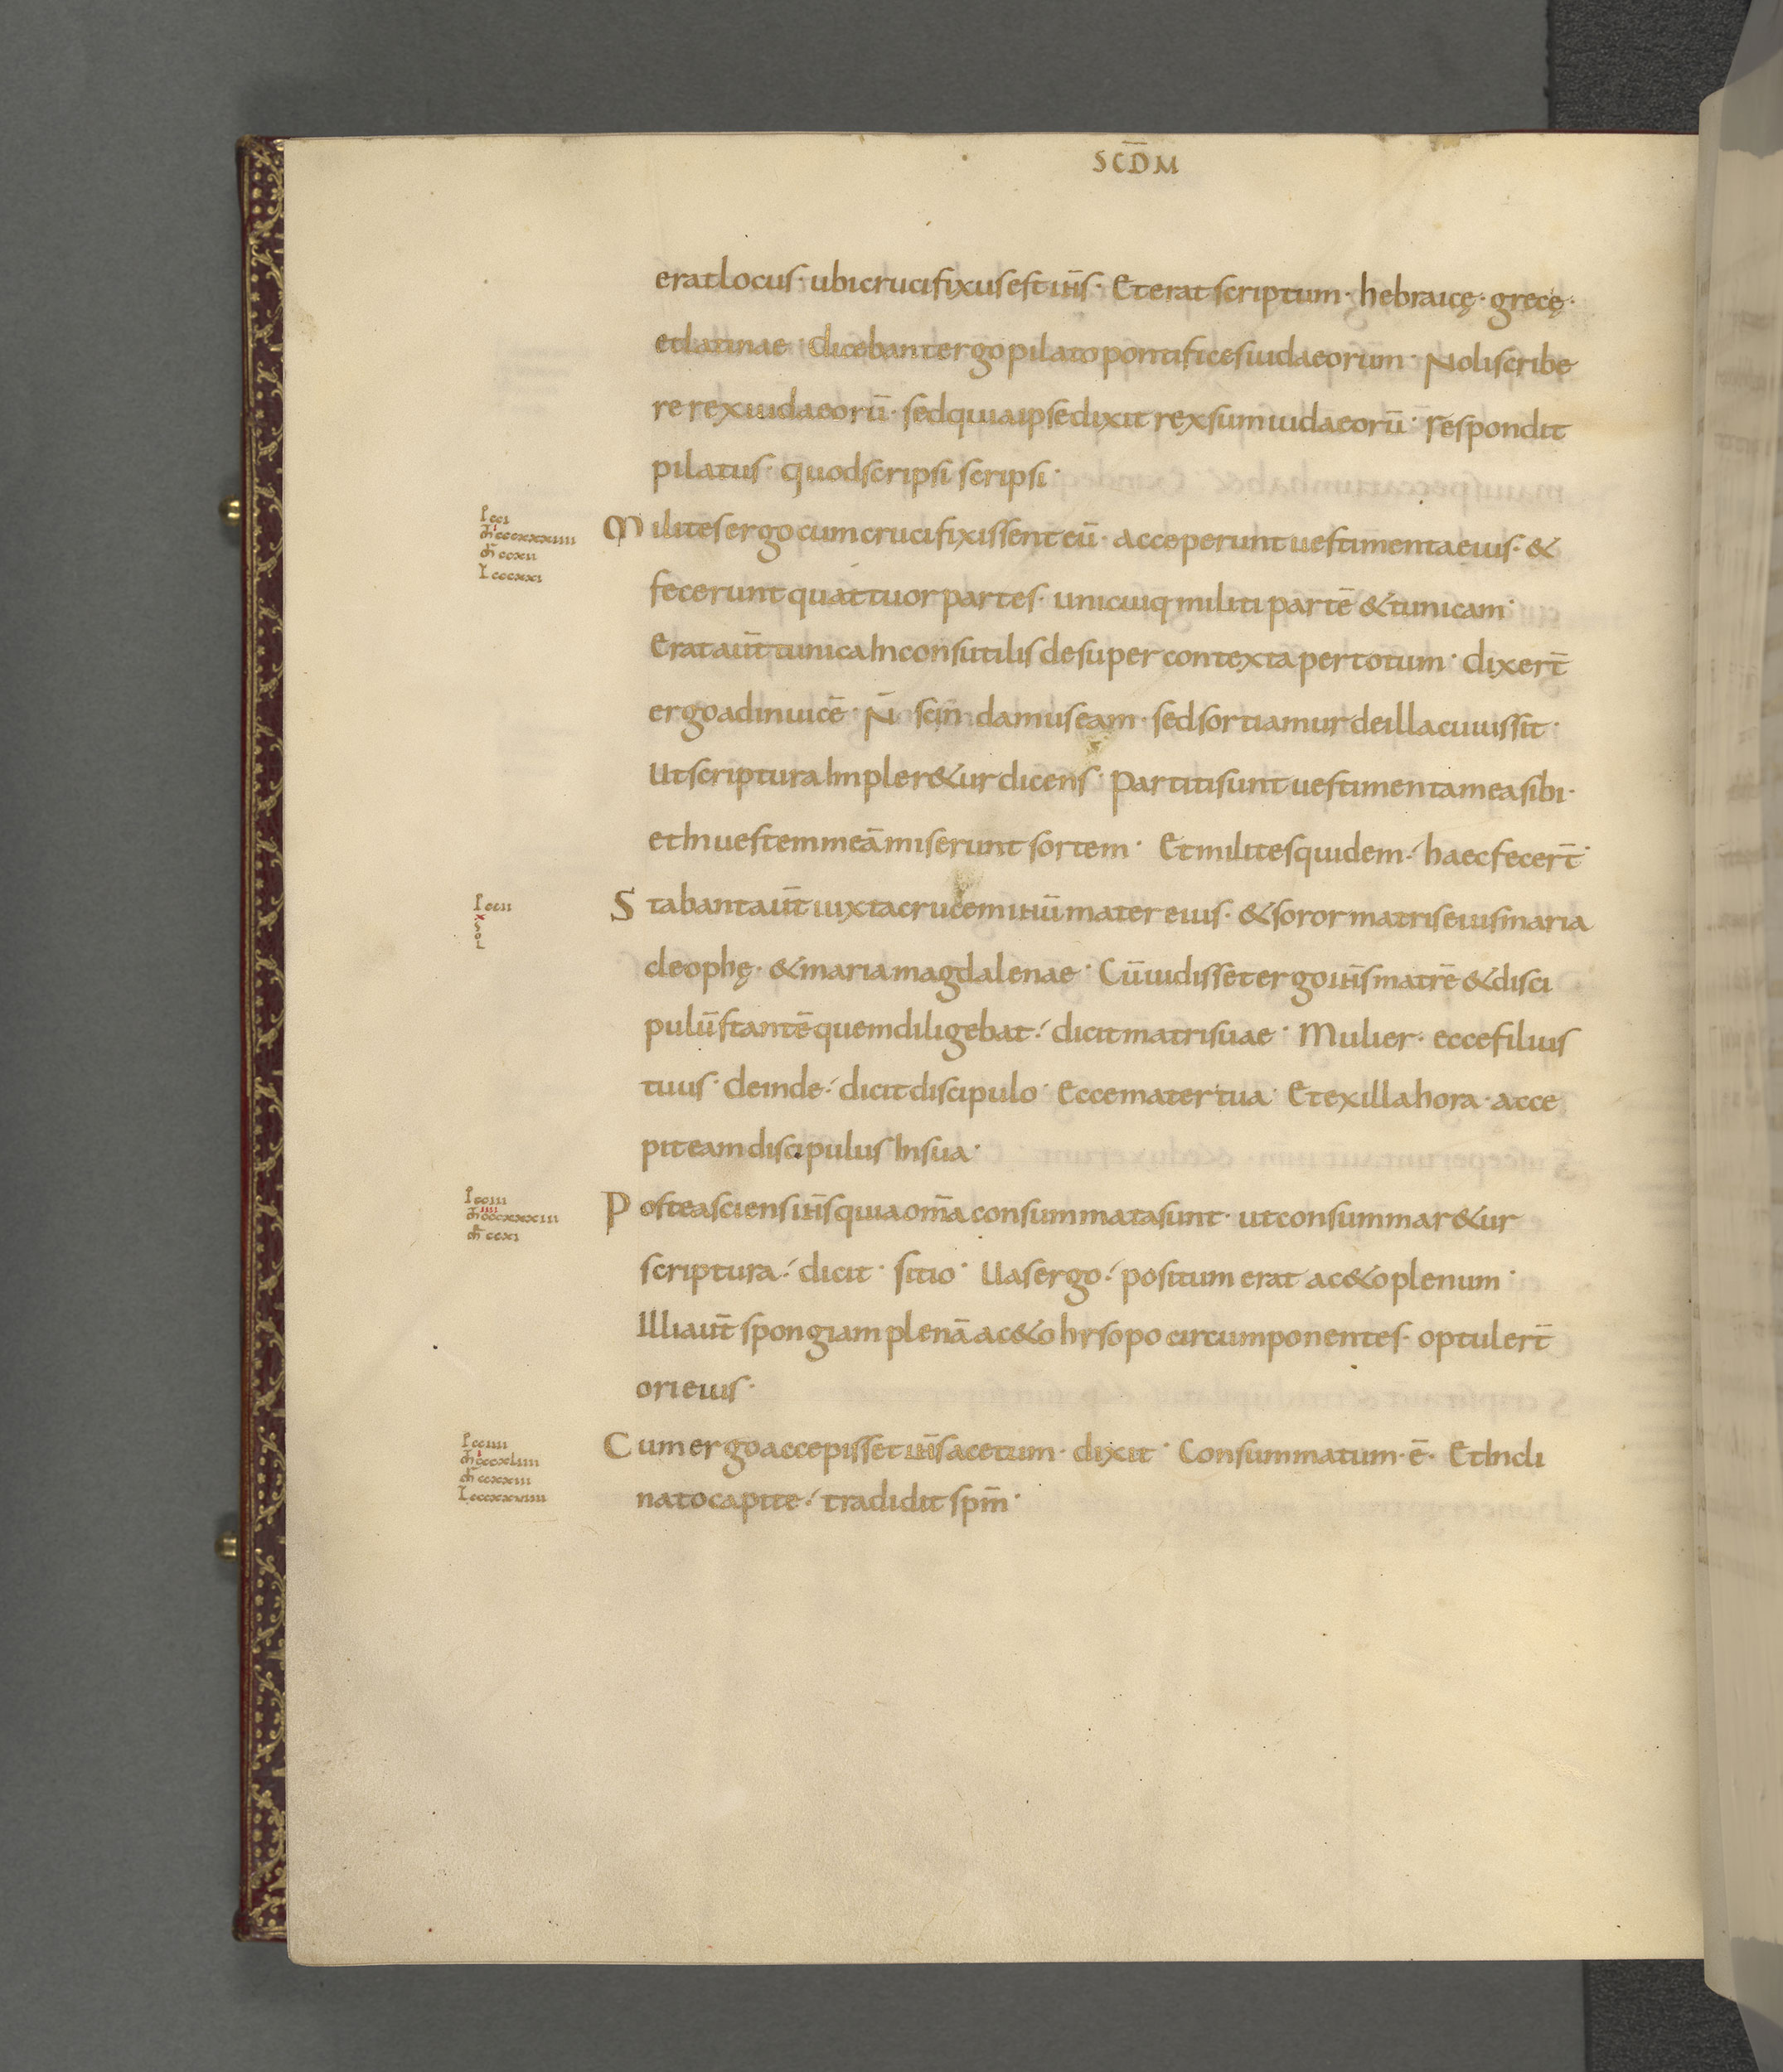 SCD̄M
erat locus · ubi crucifixus est ih̄s · Et erat scriptum · hebraicę · grecę ·
et latinae · dicebant ergo pilato pontifices iudaeorum · Noli scribe
re rex iudaeorū · sed quia ipse dixit rex sum iudaeorū · respondit
pilatus · quod scripsi scripsi ·
Milites ergo cum crucifixissent eū · acceperunt uestimenta eius · &
fecerunt quattuor partes · unicuiq militi partē & tunicam ·
Erat aūt tunica Inconsutilis desuper contexta per totum · dixert̄
ergo ad inuicē · N̄ scindamus eam · sed sortiamur de illa cuius sit ·
Ut scriptura Impler&ur dicens · partiti sunt uestimenta mea sibi ·
et In uestem meā miserunt sortem · Et milites quidem · haec fecert̄ ·
Stabant aūt iuxta crucem ihū mater eius · & soror matris eius maria
cleophę · & maria magdalenae · Cū uidisset ergo ih̄s matrē & disci
pulū stantē quem diligebat · dicit matri suae · Mulier · ecce filius
tuus · deinde · dicit discipulo · Ecce mater tua · Et ex illa hora · acce
pit eam discipulus In sua ·
Postea sciens ih̄s quia om̄a consummata sunt · ut consummar&ur
scriptura · dicit · sitio · Uas ergo · positum erat ac&o plenum ·
Illi aūt spongiam plenā ac&o hysopo circumponentes · optulert̄
ori eius ·
Cum ergo accepisset ih̄s acetum · dixit · Consummatum · ē · Et Incli
nato capite · tradidit sp̄m ·